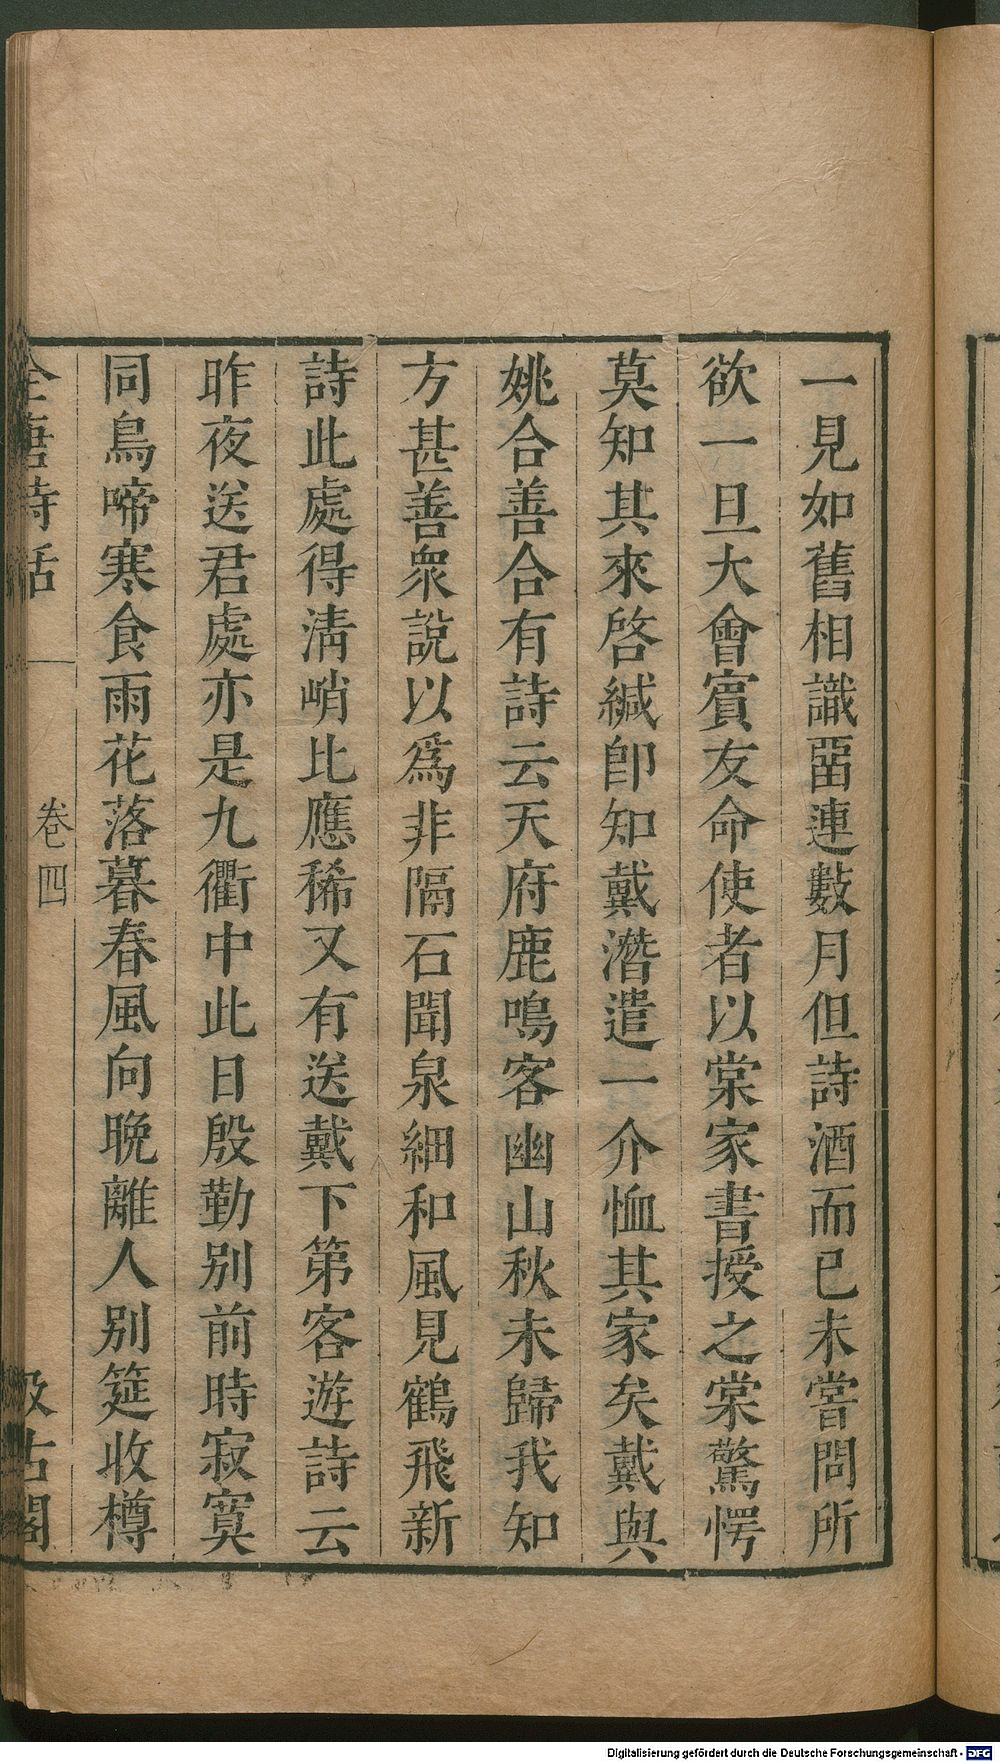 一見如舊相識畱連數月但詩酒而已未嘗問所
欲一旦大會賓友命使者以棠家書授之棠驚愕
莫知其來啓緘卽知戴潛遣一介恤其家矣戴與
姚合善合有詩云天府鹿鳴客幽山秋未歸我知
方甚善衆說以爲非隔石聞泉細和風見鶴飛新
詩此處得淸峭比應稀又有送戴下第客遊詩云
昨夜送君處亦是九衢中此日殷勤別前時寂寞
同鳥啼寒食雨花落暮春風向晚離人別筵收樽
全唐詩話 卷四 汲古閣
Digitalisierung gefördert durch die Deutsche Forschungsgemeinschaft - DFG